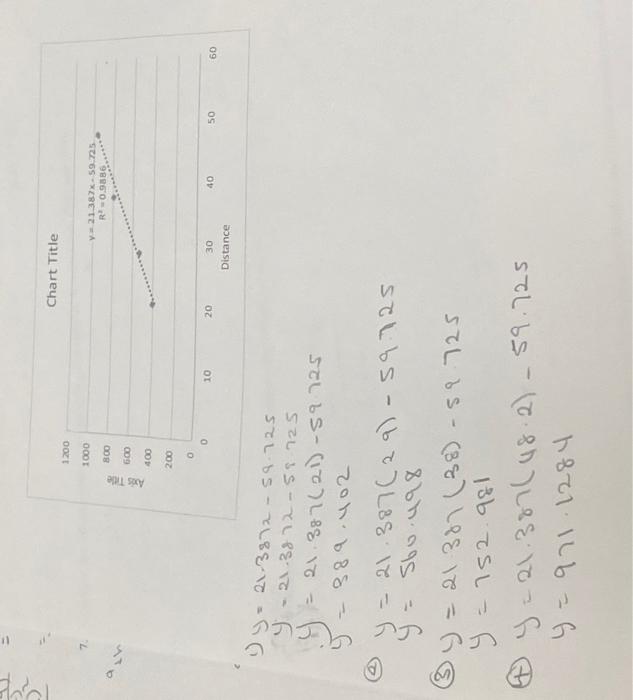 Chart Title
1200
1000
800
600
400
200
0
Axis Title
y = 21.387x - 59.725
R² = 0.9886
0 10 20 30 40 50 60
Distance
7.
1) y = 21.387x - 59.725
y = 21.387x - 59.725
y = 21.387(21) - 59.725
y = 389.402
② y = 21.387(29) - 59.725
y = 560.498
③ y = 21.387(38) - 59.725
y = 752.981
④ y = 21.387(48.2) - 59.725
y = 971.1284